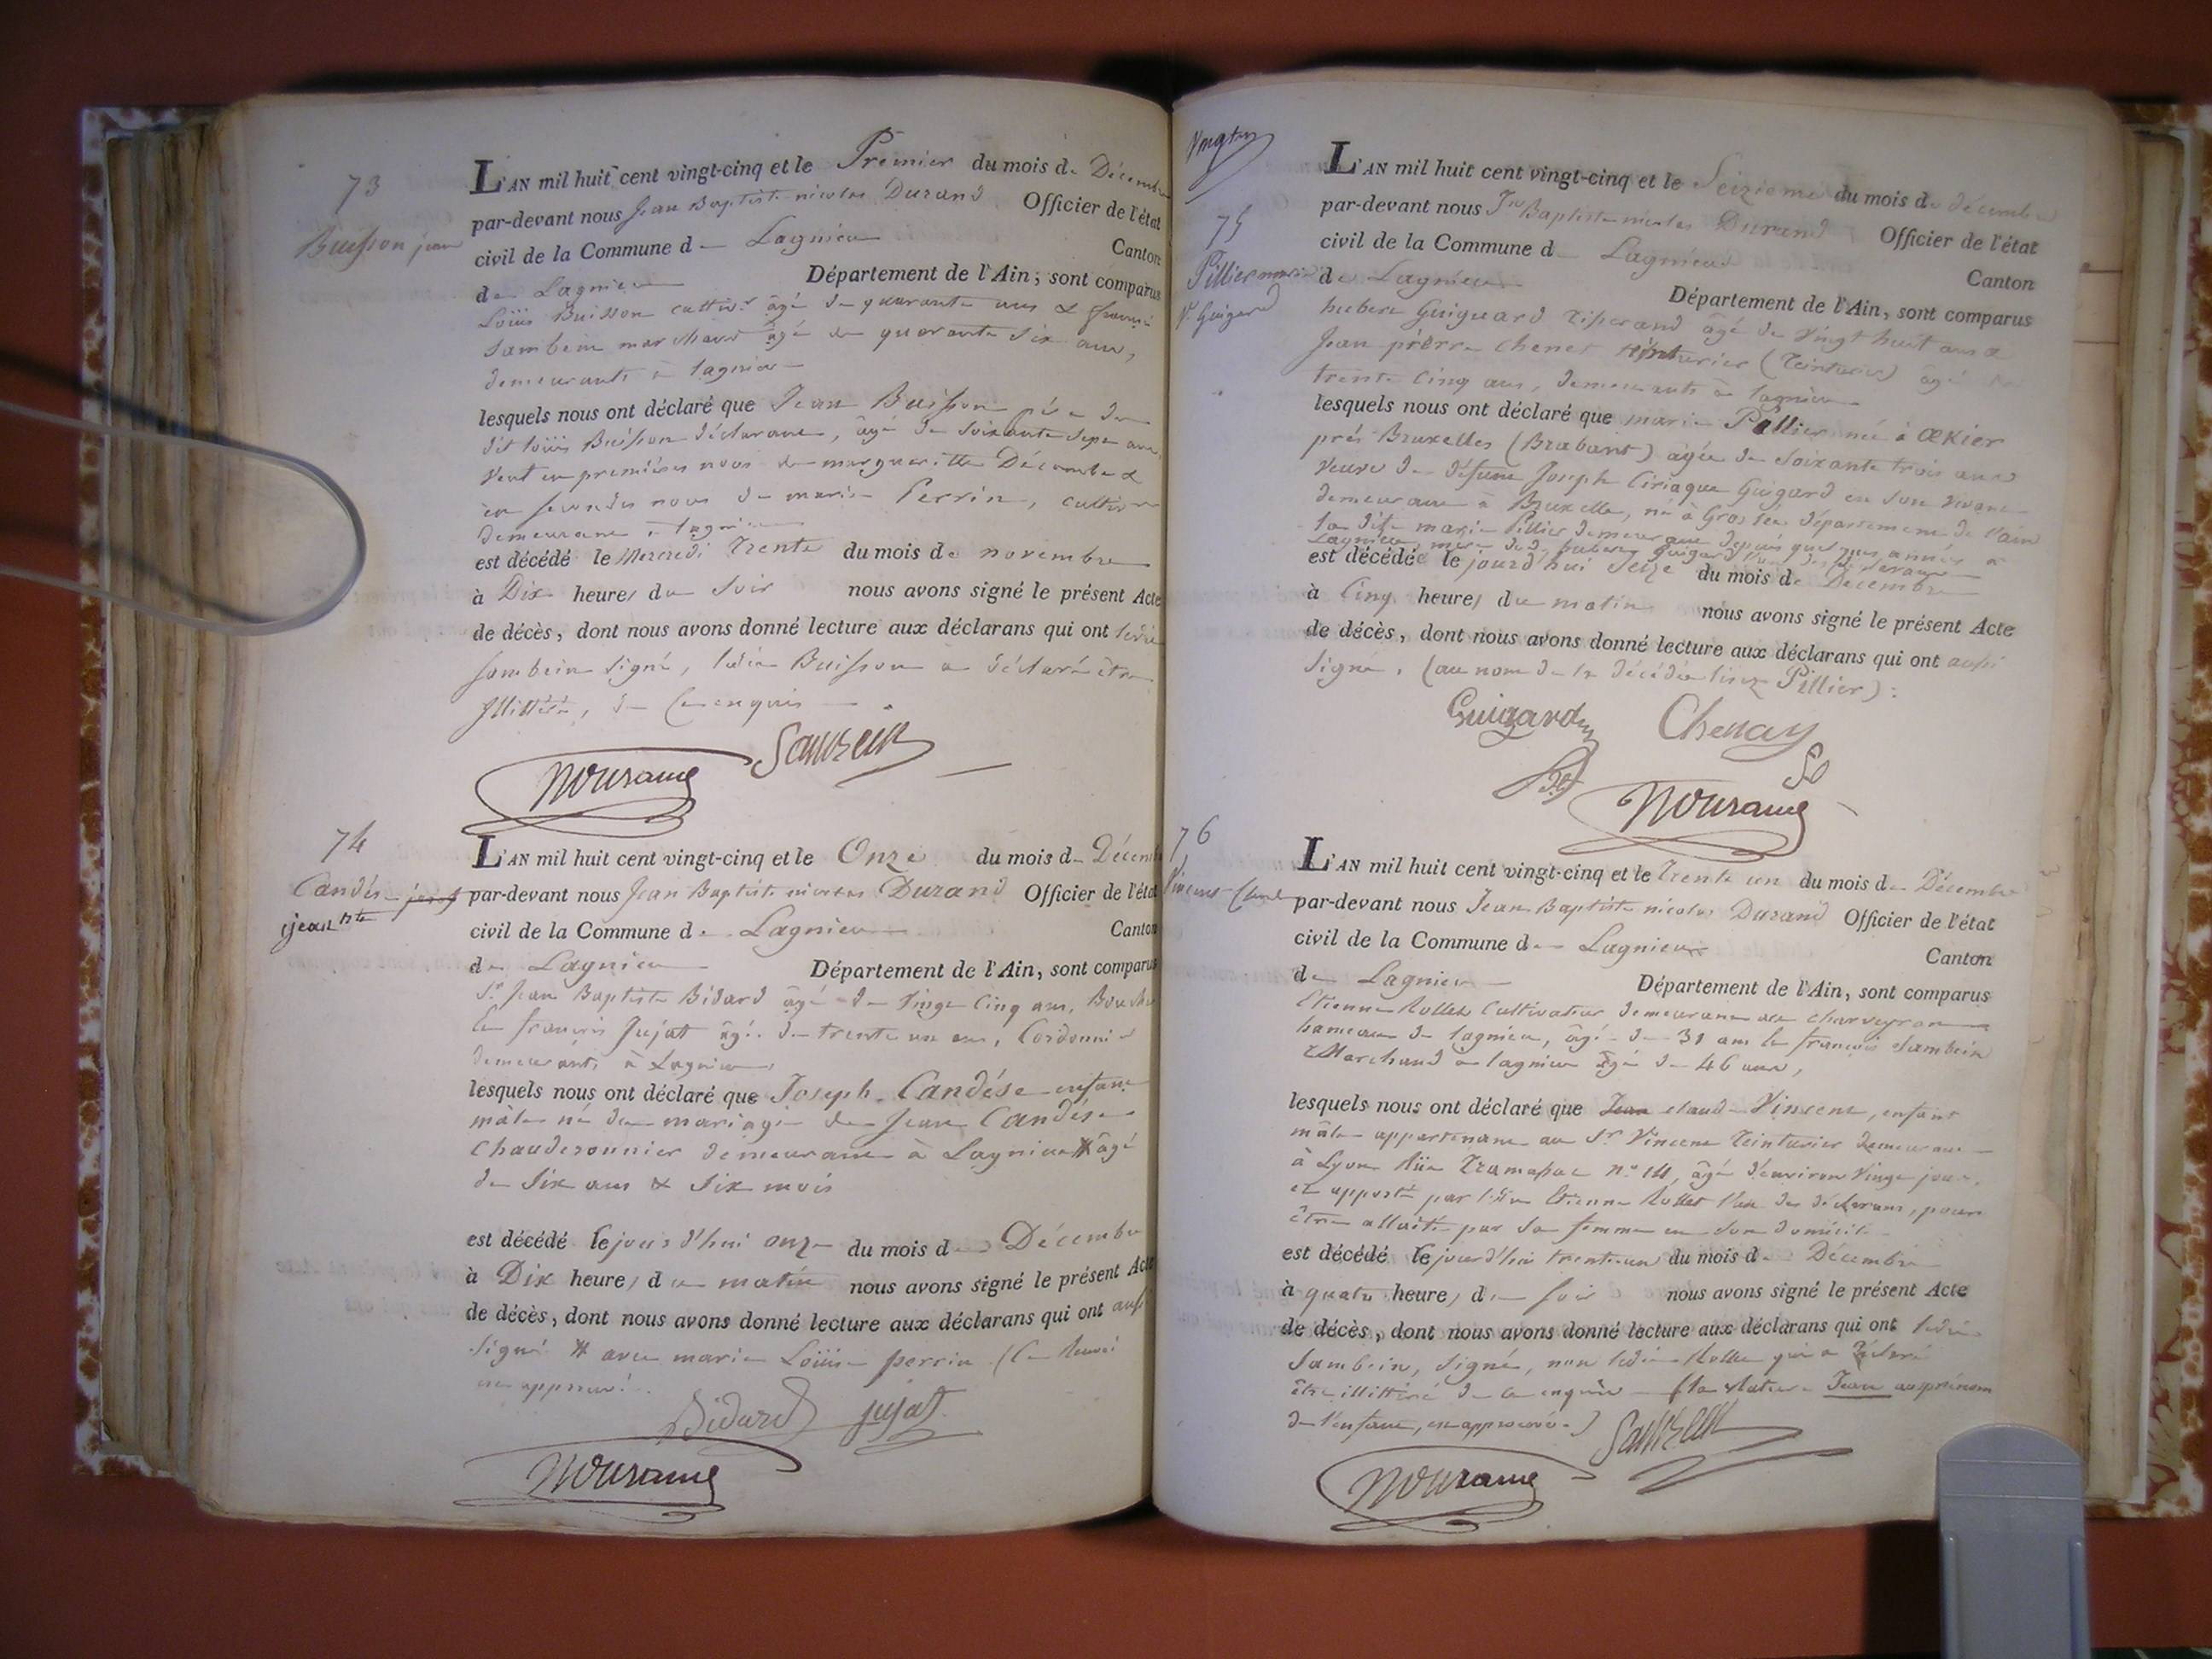 73
Buisson jean
L'AN mil huit cent vingt-cinq et le Premier du mois de Décembre
par-devant nous Jean Baptiste nicolas Durand Officier de l'état
civil de la Commune de Lagnieu Canton
de Lagnieu Département de l'Ain, sont comparus
Loüis Buisson cultivr âgé de quarante ans &
Sambein marchand âgé de quarante six ans,
demeurants à lagnieu
lesquels nous ont déclaré que Jean Buisson père du
dit loüis Buisson déclarant, âgé de soixante sept ans,
veuf en premières noces de margueritte Décombe &
en secondes noces de marie Perrin, cultivr
demeurant à lagnieu
est décédé le Mercredi Trente du mois de novembre
à Dix heures du soir nous avons signé le présent Acte
de décès, dont nous avons donné lecture aux déclarans qui ont ledit
Sambein signé, ledit Buisson a déclaré être
illittéré, de ce enquis
Sambein
NDurand
74
Candése josep
jean Bte
L'AN mil huit cent vingt-cinq et le Onze du mois de Décemb
par-devant nous Jean Baptiste nicolas Durand Officier de l'état
civil de la Commune de Lagnieu Canton
de Lagnieu Département de l'Ain, sont comparus
Sr Jean Baptiste Bidard âgé de vingt cinq ans, Boucher
Et françois Jujat âgé de trente un ans, Cordonnier
demeurants à Lagnieu,
lesquels nous ont déclaré que Joseph Candése enfant
mâle né du mariage de Jean Candése
chauderonnier demeurant à Lagnieu # âgé
de Six ans & Six mois
est décédé le jourd'hui onze du mois de Décembre
à Dix heures du matin nous avons signé le présent Acte
de décès, dont nous avons donné lecture aux déclarans qui ont aussi
signé # avec marie Loüise perrin (le Renvoi
est approuvé.
Bidard jujat
NDurand
75
Pillier marie
Ve Guigard
L'AN mil huit cent vingt-cinq et le Seizieme du mois de décembre
par-devant nous Jn Baptiste nicolas Durand Officier de l'état
civil de la Commune de Lagnieu Canton
de Lagnieu Département de l'Ain, sont comparus
hubert Guiguard tisserand âgé de vingt huit ans &
Jean pierre chenet teinturier (Teinturier) âgé de
trente cinq ans, demeurants à lagnieu
lesquels nous ont déclaré que marie Pallier née à OEKier
près Bruxelles (Brabant) âgée de soixante trois ans
veuve de défunt Joseph Ciriaque Guigard en son vivant
demeurant à Bruxelle, né à Groslée département de l'ain
la dite marie Pillier demeurant depuis quelques années à
Lagnieu, mère dud. hubert Guigard l'un des déclarans
est décédée le jourd'hui seize du mois de Décembre
à Cinq heures du matin nous avons signé le présent Acte
de décès, dont nous avons donné lecture aux déclarans qui ont aussi
signé, (au nom de la décédée lisez Pillier):
Guigard Chenay
NDurand
76
Vincent Claude
L'AN mil huit cent vingt-cinq et le Trente un du mois de Décembre
par-devant nous Jean Baptiste nicolas Durand Officier de l'état
civil de la Commune de Lagnieu Canton
de Lagnieu Département de l'Ain, sont comparus
Etienne Rollet Cultivateur demeurant au charveyron
hameau de lagnieu, âgé de 31 ans & françois Sambein
Marchand à lagnieu âgé de 46 ans,
lesquels nous ont déclaré que Jean claude Vincent, enfant
mâle appartenant au Sr Vincent Teinturier demeurant
à Lyon Rüe Tramassac no 14, âgé d'environ vingt jours,
et apporté par ledit Etienne Rollet l'un des déclarans, pour
être allaité par sa femme en son domicile
est décédé le jourd'hui trente-un du mois de Décembre
à quatre heures du soir nous avons signé le présent Acte
de décès, dont nous avons donné lecture aux déclarans qui ont ledit
Sambein, signé, non ledit Rollet qui a déclaré
être illittéré de ce enquis (la rature Jean au prénom
de l'enfant, est approuvée.)
Sambein
NDurand